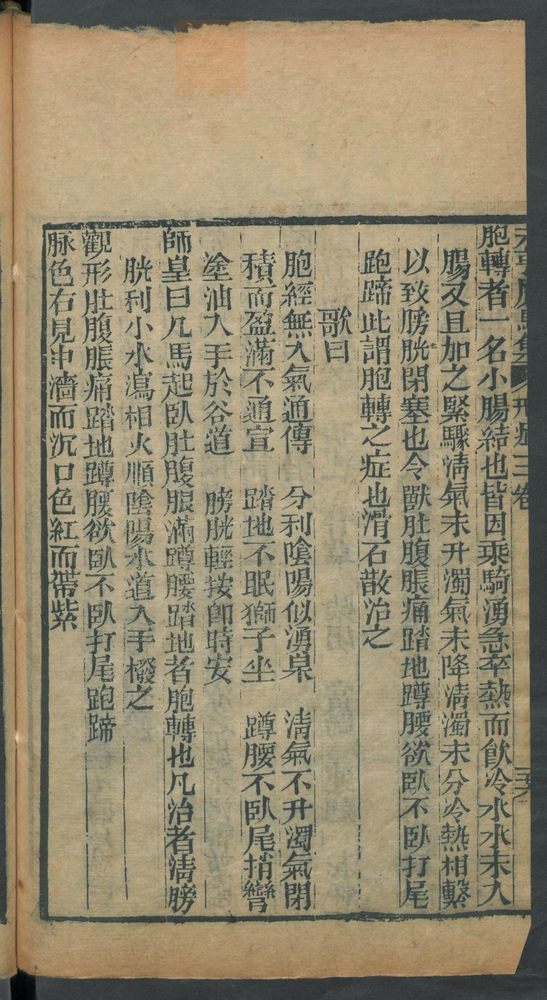 元亨療馬集 刑處三卷
胞轉者一名小腸結也皆因乘騎湧急卒熱而飲冷水水未入
腸又且加之緊驟清氣未升濁氣未降清濁未分冷熱相繫
以致膀胱閉塞也令獸肚腹脹痛踏地蹲腰欲臥不臥打尾
跑蹄此謂胞轉之症也滑石散治之
歌曰
胞經無入氣通傳 分利陰陽似湧泉 清氣不升濁氣閉
積而盈滿不通宣 踏地不眠獅子坐 蹲腰不臥尾捎彎
塗油入手於谷道 膀胱輕按即時安
師皇曰凡馬起臥肚腹脹滿蹲腰踏地者胞轉也凡治者清膀
胱利小水瀉相火順陰陽水道入手橃之
觀形肚腹脹痛踏地蹲腰欲臥不臥打尾跑蹄
脉色右見中濇而沉口色紅而帶紫